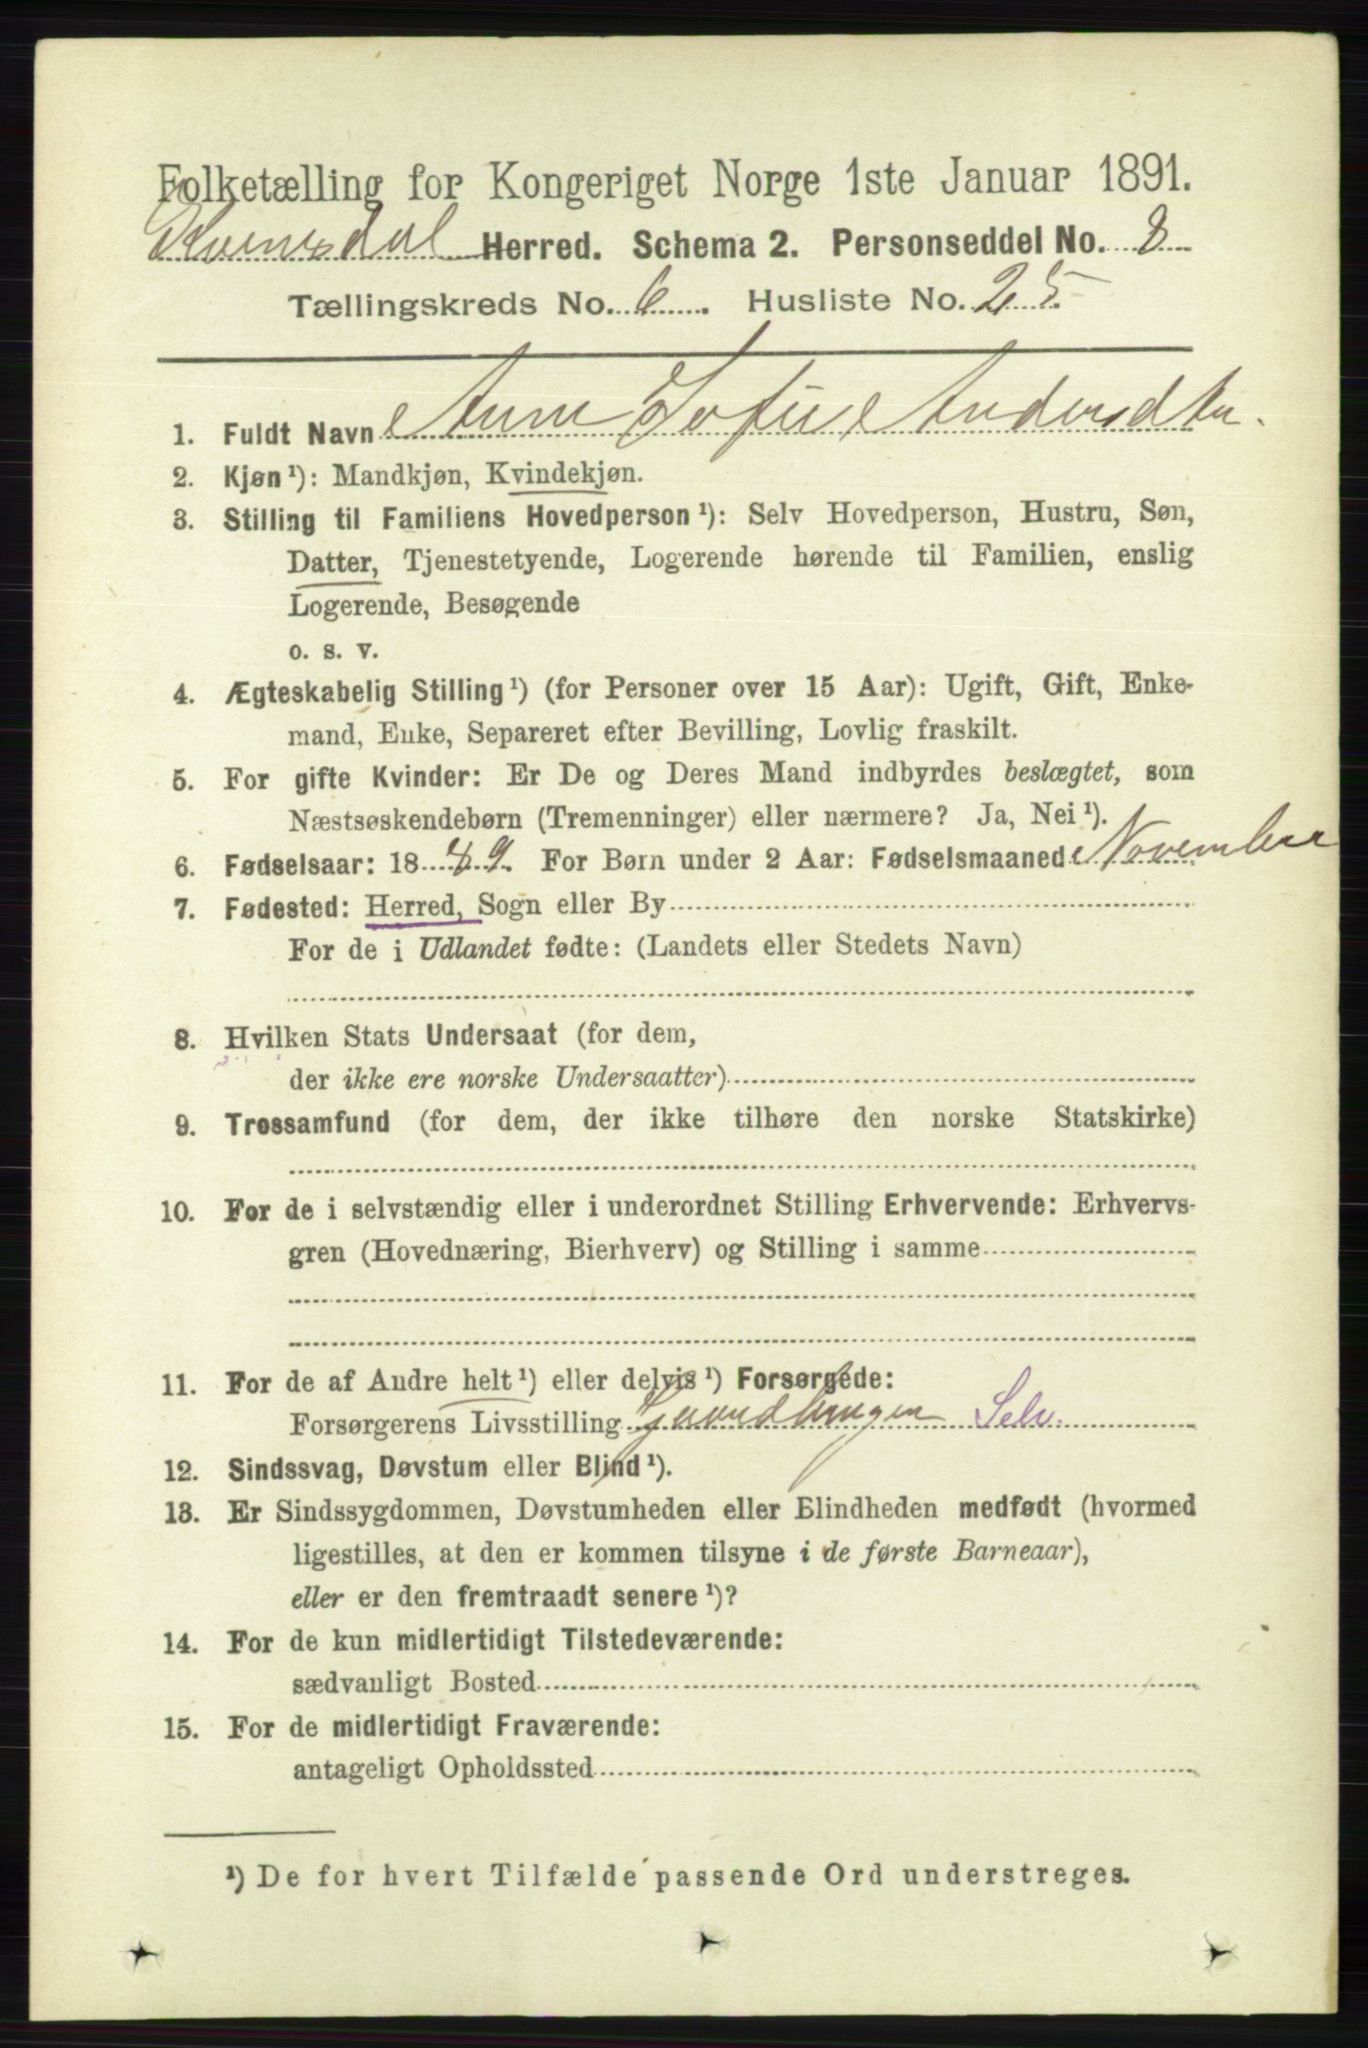 Folketælling for Kongeriget Norge 1ste Januar 1891.
Herred. Schema 2. Personseddel No. 8
Tællingskreds No. 6. Husliste No. 25.
1. Fuldt Navn Anne Sofie Andersdtr.
2. Kjøn ¹): Mandkjøn, Kvindekjøn.
3. Stilling til Familiens Hovedperson ¹): Selv Hovedperson, Hustru, Søn,
Datter, Tjenestetyende, Logerende hørende til Familien, enslig
Logerende, Besøgende
o. s. v.
4. Ægteskabelig Stilling ¹) (for Personer over 15 Aar): Ugift, Gift, Enke-
mand, Enke, Separeret efter Bevilling, Lovlig fraskilt.
5. For gifte Kvinder: Er De og Deres Mand indbyrdes beslægtet, som
Næstsøskendebørn (Tremenninger) eller nærmere? Ja, Nei ¹).
6. Fødselsaar: 1889. For Børn under 2 Aar: Fødselsmaaned November
7. Fødested: Herred, Sogn eller By
For de i Udlandet fødte: (Landets eller Stedets Navn)
8. Hvilken Stats Undersaat (for dem,
der ikke ere norske Undersaatter)
9. Trossamfund (for dem, der ikke tilhøre den norske Statskirke)
10. For de i selvstændig eller i underordnet Stilling Erhvervende: Erhvervs-
gren (Hovednæring, Bierhverv) og Stilling i samme
11. For de af Andre helt ¹) eller delvis ¹) Forsørgede:
Forsørgerens Livsstilling Gaardbruger Selv.
12. Sindssvag, Døvstum eller Blind ¹).
13. Er Sindssygdommen, Døvstumheden eller Blindheden medfødt (hvormed
ligestilles, at den er kommen tilsyne i de første Barneaar),
eller er den fremtraadt senere ¹)?
14. For de kun midlertidigt Tilstedeværende:
sædvanligt Bosted
15. For de midlertidigt Fraværende:
antageligt Opholdssted
¹) De for hvert Tilfælde passende Ord understreges.